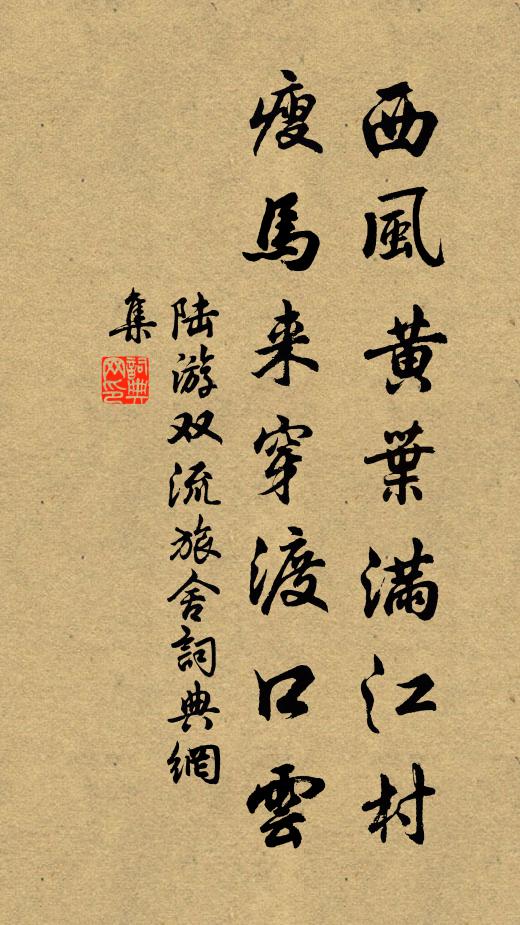 西風黄葉滿江村
瘦馬来穿渡口雲
陆游双流旅舍詞典網
集
詞典
网印